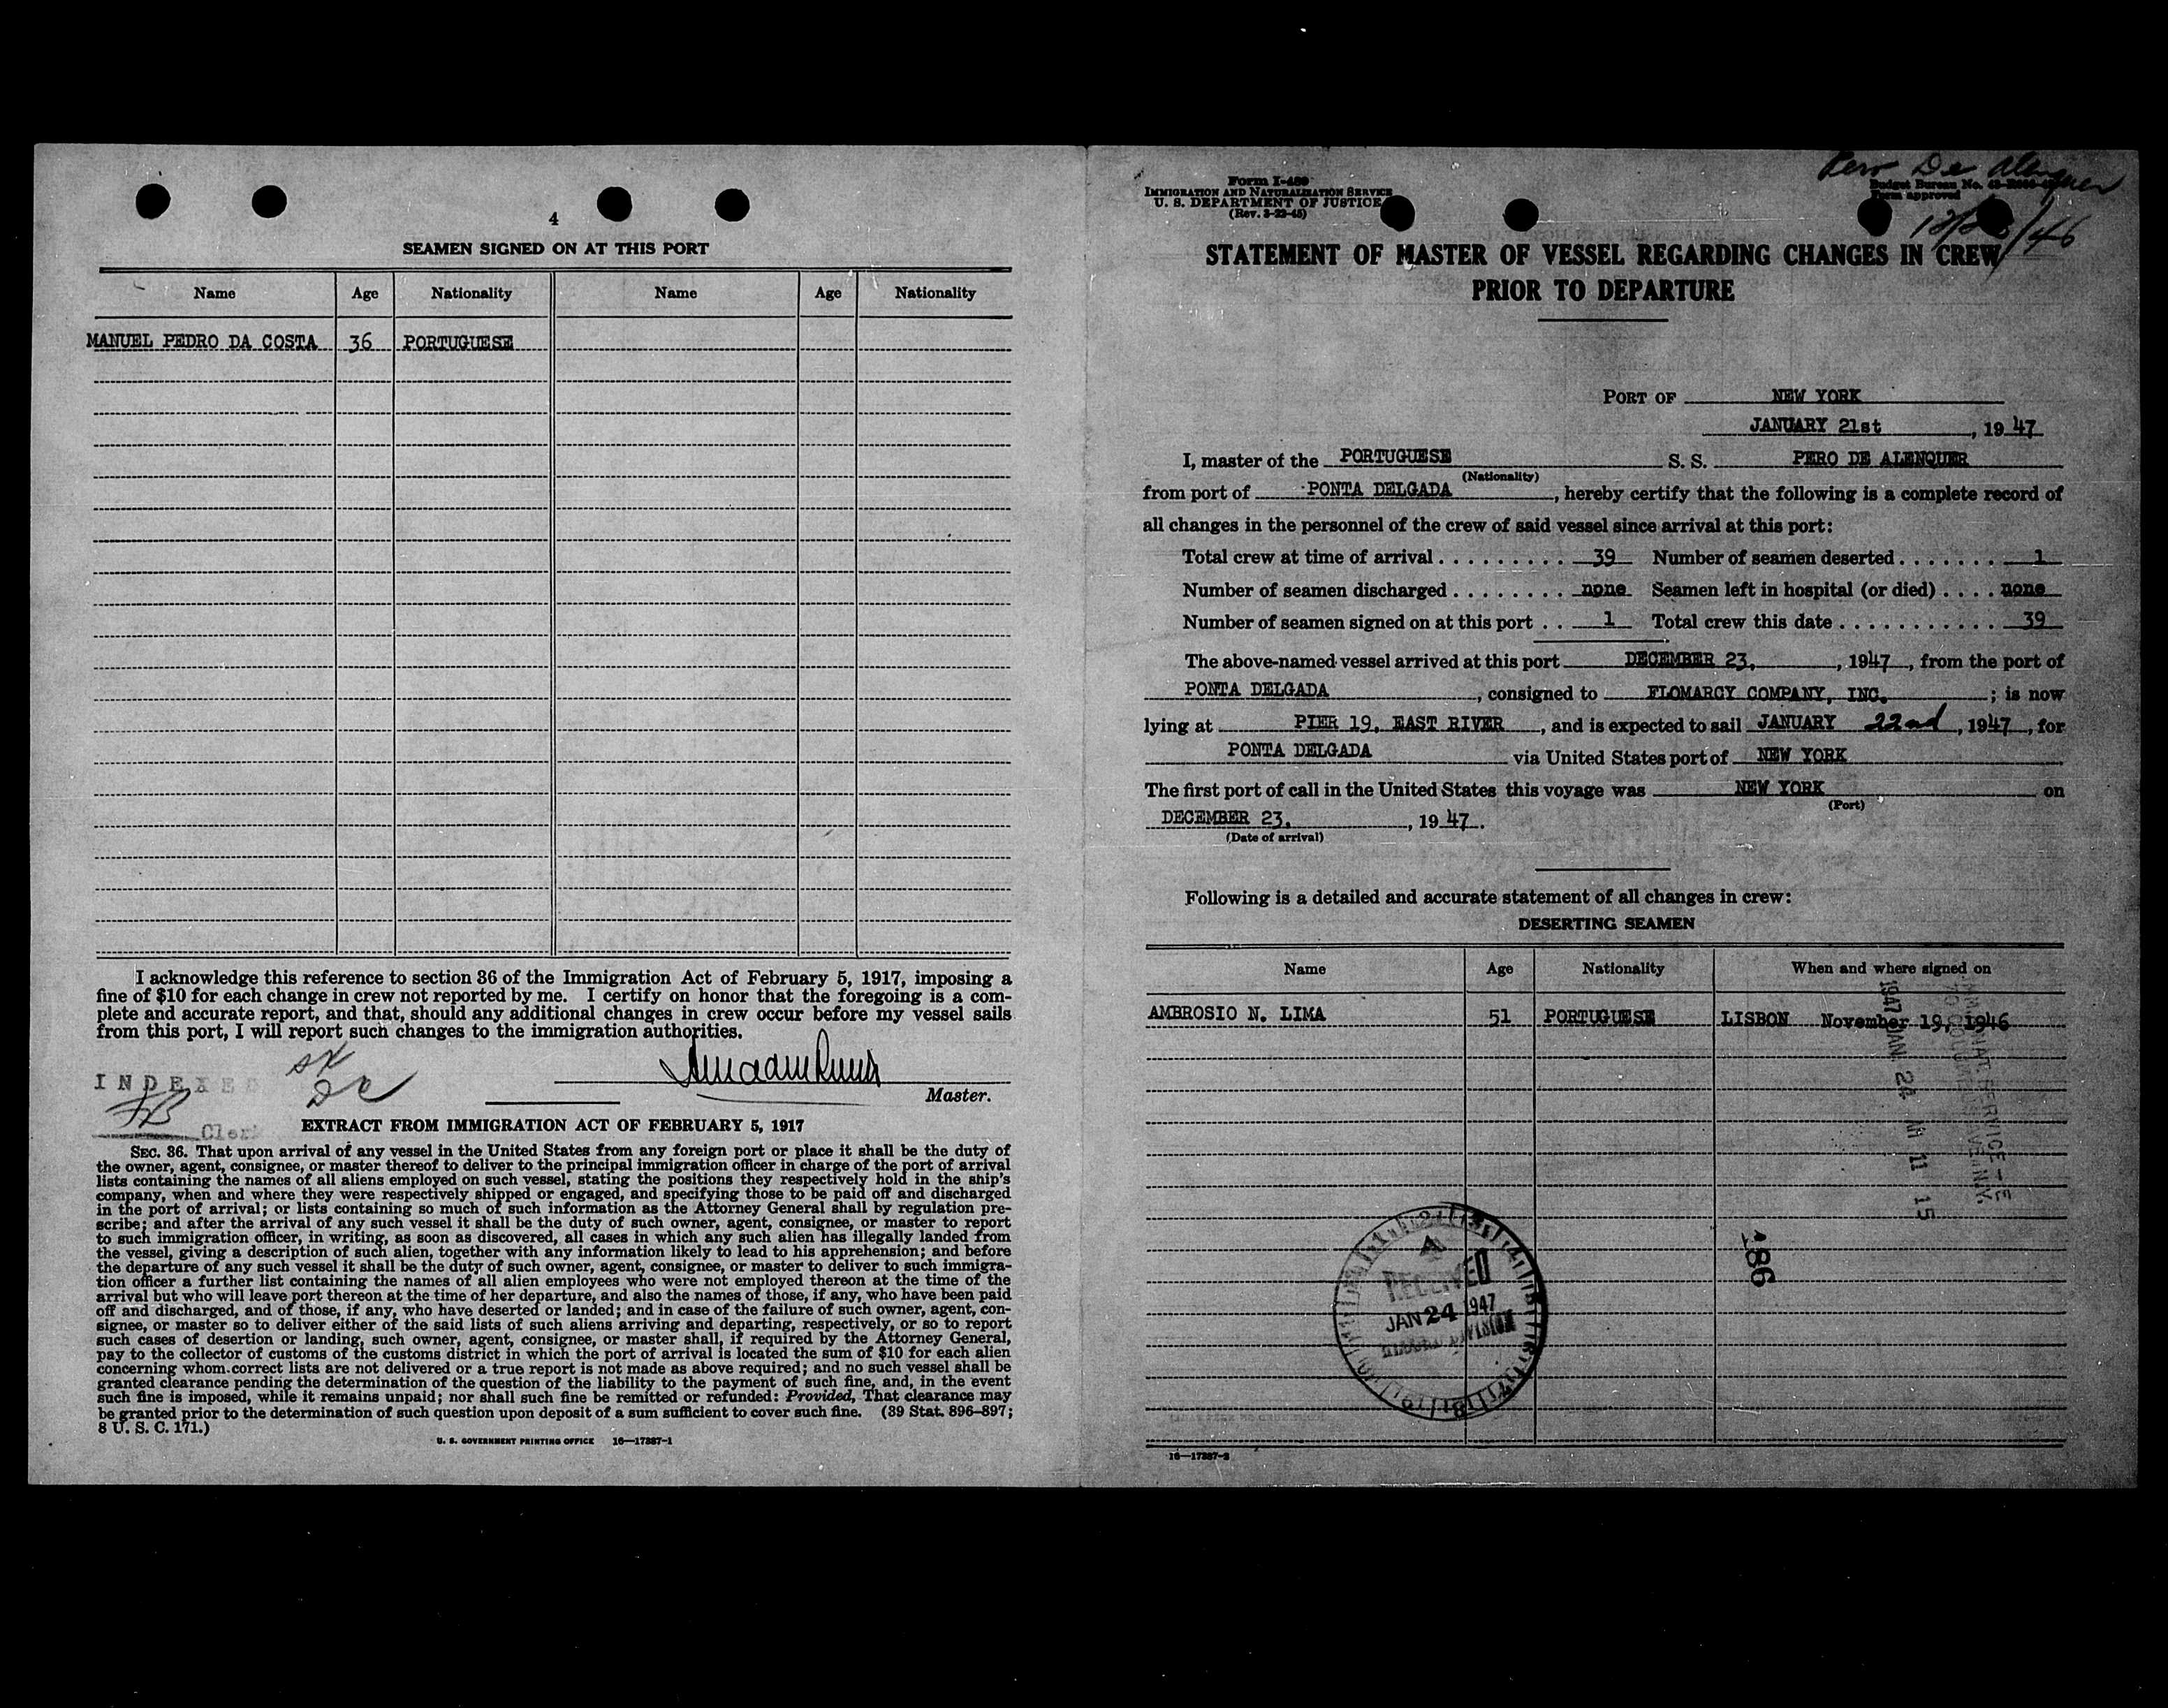 4
SEAMEN SIGNED ON AT THIS PORT
Name Age Nationality Name Age Nationality
MANUEL PEDRO DA COSTA 36 PORTUGUESE
I acknowledge this reference to section 36 of the Immigration Act of February 5, 1917, imposing a
fine of $10 for each change in crew not reported by me. I certify on honor that the foregoing is a com-
plete and accurate report, and that, should any additional changes in crew occur before my vessel sails
from this port, I will report such changes to the immigration authorities.
INDEXED
Master.
Clerk
EXTRACT FROM IMMIGRATION ACT OF FEBRUARY 5, 1917
SEC. 36. That upon arrival of any vessel in the United States from any foreign port or place it shall be the duty of
the owner, agent, consignee, or master thereof to deliver to the principal immigration officer in charge of the port of arrival
lists containing the names of all aliens employed on such vessel, stating the positions they respectively hold in the ship's
company, when and where they were respectively shipped or engaged, and specifying those to be paid off and discharged
in the port of arrival; or lists containing so much of such information as the Attorney General shall by regulation pre-
scribe; and after the arrival of any such vessel it shall be the duty of such owner, agent, consignee, or master to report
to such immigration officer, in writing, as soon as discovered, all cases in which any such alien has illegally landed from
the vessel, giving a description of such alien, together with any information likely to lead to his apprehension; and before
the departure of any such vessel it shall be the duty of such owner, agent, consignee, or master to deliver to such immigra-
tion officer a further list containing the names of all alien employees who were not employed thereon at the time of the
arrival but who will leave port thereon at the time of her departure, and also the names of those, if any, who have been paid
off and discharged, and of those, if any, who have deserted or landed; and in case of the failure of such owner, agent, con-
signee, or master so to deliver either of the said lists of such aliens arriving and departing, respectively, or so to report
such cases of desertion or landing, such owner, agent, consignee, or master shall, if required by the Attorney General,
pay to the collector of customs of the customs district in which the port of arrival is located the sum of $10 for each alien
concerning whom correct lists are not delivered or a true report is not made as above required; and no such vessel shall be
granted clearance pending the determination of the question of the liability to the payment of such fine, and, in the event
such fine is imposed, while it remains unpaid; nor shall such fine be remitted or refunded: Provided, That clearance may
be granted prior to the determination of such question upon deposit of a sum sufficient to cover such fine. (39 Stat. 896–897;
8 U. S. C. 171.)
U. S. GOVERNMENT PRINTING OFFICE 16—17387-1
Pero De Alenquer
Form I-489
IMMIGRATION AND NATURALIZATION SERVICE
U. S. DEPARTMENT OF JUSTICE
(Rev. 3-22-45)
Budget Bureau No.
Form approved
STATEMENT OF MASTER OF VESSEL REGARDING CHANGES IN CREW
PRIOR TO DEPARTURE
PORT OF NEW YORK
JANUARY 21st, 1947
I, master of the PORTUGUESE S. S. PERO DE ALENQUER
(Nationality)
from port of PONTA DELGADA, hereby certify that the following is a complete record of
all changes in the personnel of the crew of said vessel since arrival at this port:
Total crew at time of arrival 39 Number of seamen deserted 1
Number of seamen discharged none Seamen left in hospital (or died) none
Number of seamen signed on at this port 1 Total crew this date 39
The above-named vessel arrived at this port DECEMBER 23, 1947, from the port of
PONTA DELGADA, consigned to FLOMARCY COMPANY, INC.; is now
lying at PIER 19, EAST RIVER, and is expected to sail JANUARY 22nd, 1947, for
PONTA DELGADA via United States port of NEW YORK
The first port of call in the United States this voyage was NEW YORK on
(Port)
DECEMBER 23, 1947.
(Date of arrival)
Following is a detailed and accurate statement of all changes in crew:
DESERTING SEAMEN
Name Age Nationality When and where signed on
AMBROSIO N. LIMA 51 PORTUGUESE LISBON November 19, 1946
1947 JAN 24 11 15
186
RECEIVED
JAN 24 1947
DIVISION
16—17387-2